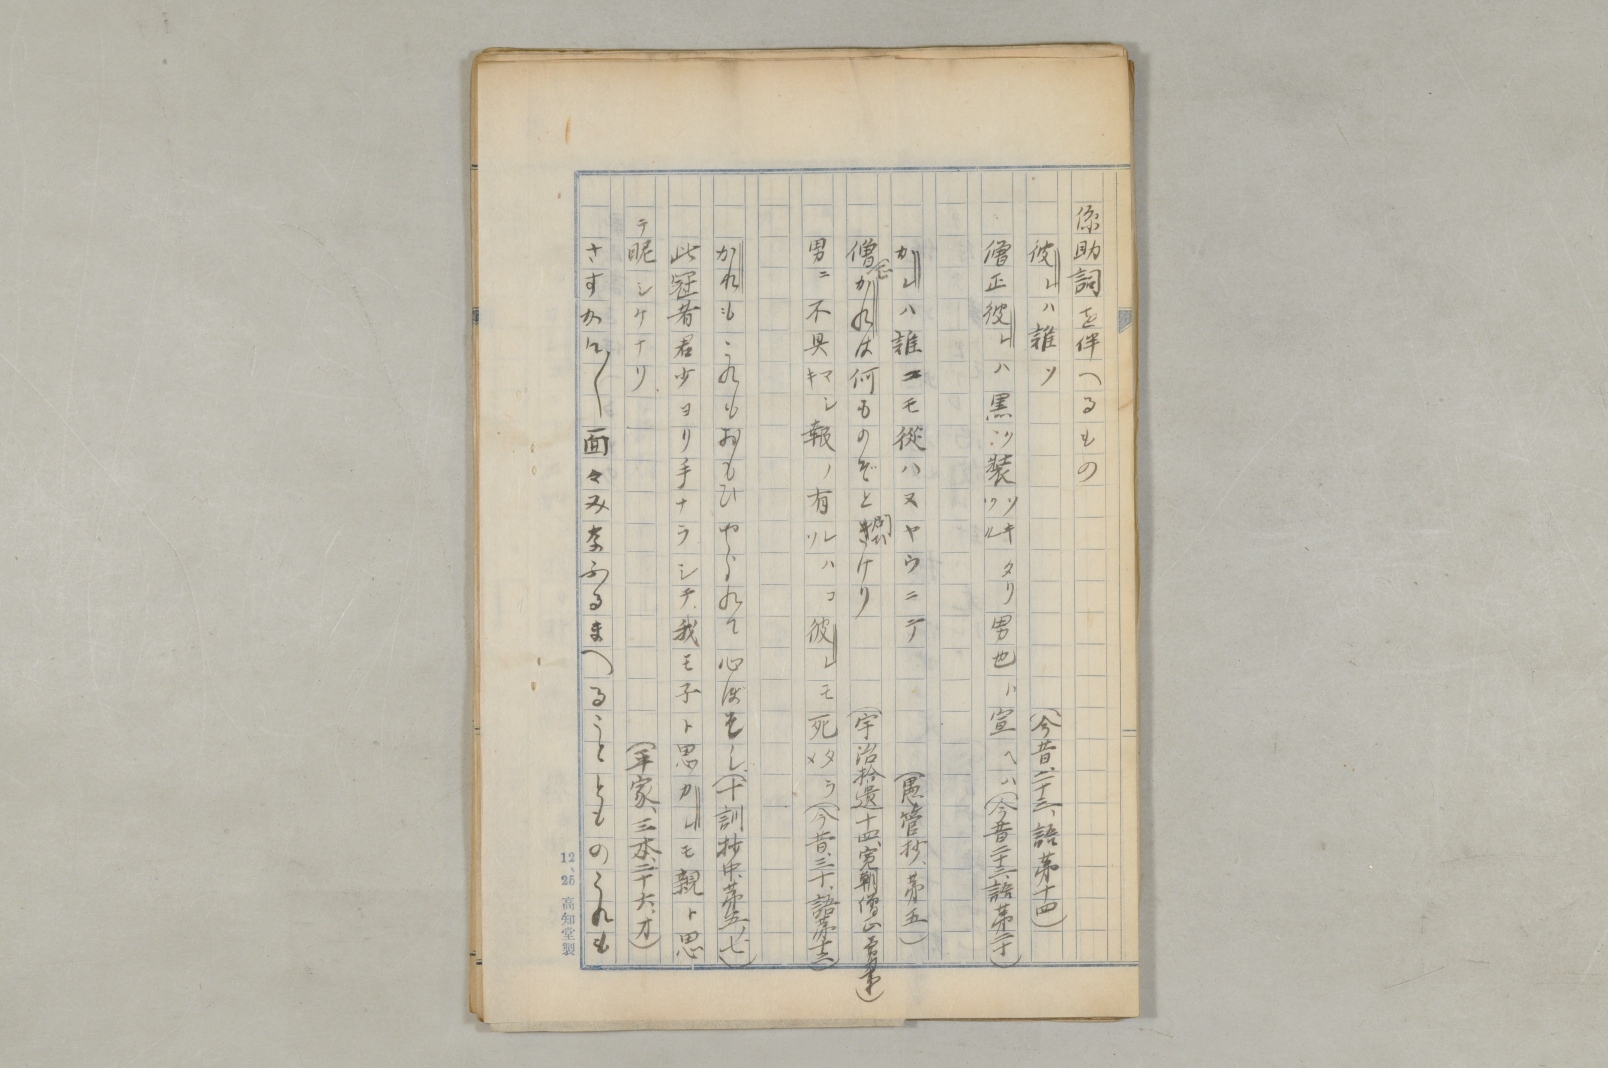 係助詞を伴へるもの
彼レハ誰ソ（今昔、二十三、語第十四）
僧正彼レハ黒ツ装ソキタリツル男也ト宣ヘハ（今昔二十三、語第二十）
かレハ誰ニモ從ハヌヤウニテ（愚管抄、第五）
僧正かれは何ものぞと問ひきけり（宇治拾遺十四、寛朝僧正勇力事）
男ニ不具キマシ報ノ有ルソレハコ彼レモ死メタラ（今昔、三十、語第十三）
かれもこれもおもひやられて心ぼそし（十訓抄中、第五、七）
此冠者君少ヨリ手ナラシテ我モ子ト思カレモ親ト思
テ昵シケナリ（平家、三本、二十六、オ）
さすかに〳〵面々みなふるまへることとものこれも
12、25 高知堂製